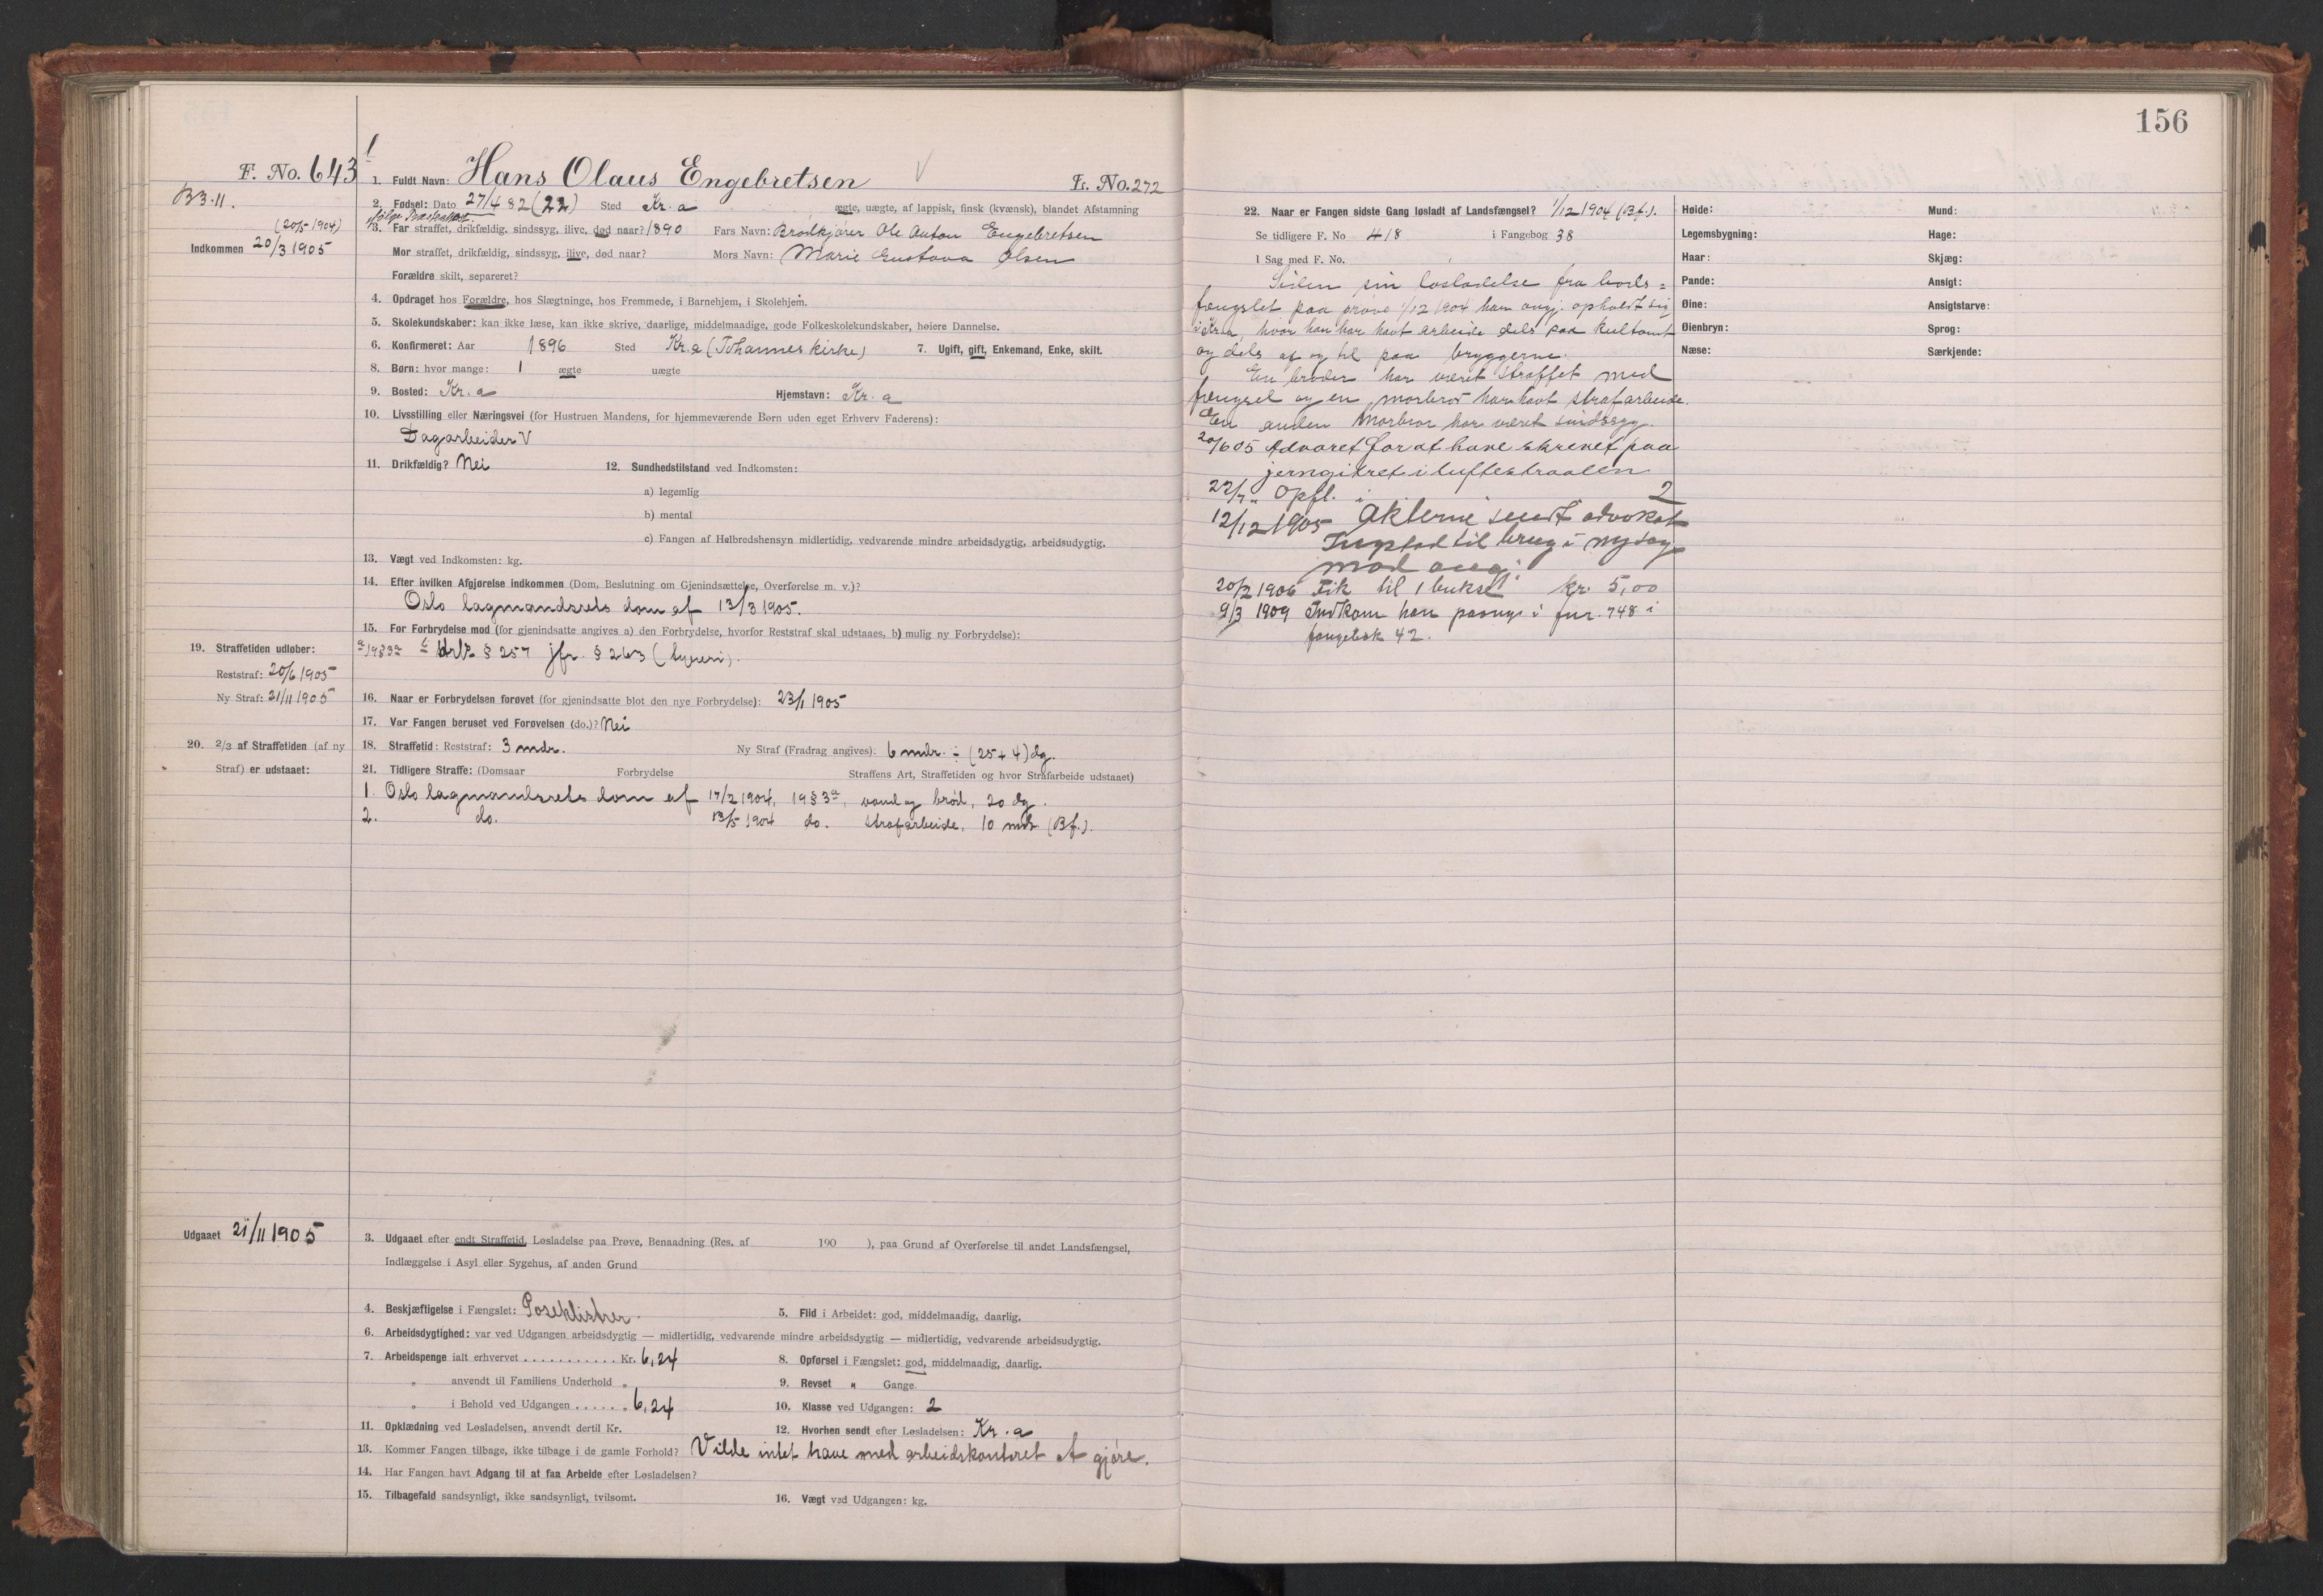 156
F. No. 643
1. Fuldt Navn: Hans Olaus Engebretsen
L. No. 272
B 3.11.
2. Fødsel: Dato 27/4 82 (22) Sted Kr.a ægte, uægte, af lappisk, finsk (kvænsk), blandet Afstamning
(20/5 1904)
Indkommen 20/3 1905
3. Far straffet, drikfældig, sindssyg, ilive, død naar? 1890 Fars Navn: Brødkjører Ole Anton Engebretsen
Mor straffet, drikfældig, sindssyg, ilive, død naar? Mors Navn: Marie Gustava Olsen
Forældre skilt, separeret?
4. Opdraget hos Forældre, hos Slægtninge, hos Fremmede, i Barnehjem, i Skolehjem.
5. Skolekundskaber: kan ikke læse, kan ikke skrive, daarlige, middelmaadige, gode Folkeskolekundskaber, høiere Dannelse.
6. Konfirmeret: Aar 1896 Sted Kr.a (Johannes kirke) 7. Ugift, gift, Enkemand, Enke, skilt.
8. Børn: hvor mange: 1 ægte uægte
9. Bosted: Kr.a Hjemstavn: Kr.a
10. Livsstilling eller Næringsvei (for Hustruen Mandens, for hjemmeværende Børn uden eget Erhverv Faderens):
Dagarbeider V
11. Drikfældig? Nei 12. Sundhedstilstand ved Indkomsten:
a) legemlig
b) mental
c) Fangen af Helbredshensyn midlertidig, vedvarende mindre arbeidsdygtig, arbeidsudygtig.
13. Vægt ved Indkomsten: kg.
14. Efter hvilken Afgjørelse indkommen (Dom, Beslutning om Gjenindsættelse, Overførelse m. v.)?
Oslo lagmandsrets dom af 13/3 1905.
15. For Forbrydelse mod (for gjenindsatte angives a) den Forbrydelse, hvorfor Reststraf skal udstaaes, b) mulig ny Forbrydelse):
19. Straffetiden udløber:
a 19 § 3a § 257 jfr. § 263 (tyveri).
Reststraf: 20/6 1905
Ny Straf: 21/11 1905
16. Naar er Forbrydelsen forøvet (for gjenindsatte blot den nye Forbrydelse): 23/1 1905
17. Var Fangen beruset ved Forøvelsen (do.)? Nei
20. 2/3 af Straffetiden (af ny Straf) er udstaaet:
18. Straffetid: Reststraf: 3 mdr. Ny Straf (Fradrag angives): 6 mdr. ÷ (25+4) dg.
21. Tidligere Straffe: (Domsaar Forbrydelse Straffens Art, Straffetiden og hvor Strafarbeide udstaaet)
1. Oslo lagmandsrets dom af 17/2 1904, 19 § 3a, vand og brød, 20 dg.
2. do. 13/5 1904 do. strafarbeide, 10 mdr. (Bf.).
Udgaaet 21/11 1905
3. Udgaaet efter endt Straffetid, Løsladelse paa Prøve, Benaadning (Res. af 190 ), paa Grund af Overførelse til andet Landsfængsel,
Indlæggelse i Asyl eller Sygehus, af anden Grund
4. Beskjæftigelse i Fængslet: Poseklistrer. 5. Flid i Arbeidet: god, middelmaadig, daarlig.
6. Arbeidsdygtighed: var ved Udgangen arbeidsdygtig — midlertidig, vedvarende mindre arbeidsdygtig — midlertidig, vedvarende arbeidsudygtig.
7. Arbeidspenge ialt erhvervet ........... Kr. 6,24 8. Opførsel i Fængslet: god, middelmaadig, daarlig.
„ anvendt til Familiens Underhold „ 9. Revset „ Gange.
„ i Behold ved Udgangen ...... „ 6,24 10. Klasse ved Udgangen: 2
11. Opklædning ved Løsladelsen, anvendt dertil Kr. 12. Hvorhen sendt efter Løsladelsen: Kr.a
13. Kommer Fangen tilbage, ikke tilbage i de gamle Forhold? Vilde intet have med arbeidskontoret at gjøre.
14. Har Fangen havt Adgang til at faa Arbeide efter Løsladelsen?
15. Tilbagefald sandsynligt, ikke sandsynligt, tvilsomt. 16. Vægt ved Udgangen: kg.
22. Naar er Fangen sidste Gang løsladt af Landsfængsel? 1/12 1904 (Bf.).
Se tidligere F. No 418 i Fangebog 38
I Sag med F. No.
Siden sin løsladelse fra bods=
fængslet paa prøve 1/12 1904 har angj. opholdt sig
i Kr.a, hvor han har havt arbeide dels paa kultomt
og dels af og til paa bryggerne.
En broder har været straffet med
fængsel og en morbror har havt strafarbeide.
En anden morbror har været sindssyg.
20/6 05 Advaret for at have skrevet paa
jerngitret i luftestraalen
22/7 " Opfl. i 2
12/12 1905 Akterne sendt advokat
til brug i ny sag
mod ang.
20/2 1906 Fik til 1 bukse kr. 5,00
9/3 1909 Indkom han paany i fnr. 748 i
fangebok 42.
Høide: Mund:
Legemsbygning: Hage:
Haar: Skjæg:
Pande: Ansigt:
Øine: Ansigtsfarve:
Øienbryn: Sprog:
Næse: Særkjende: